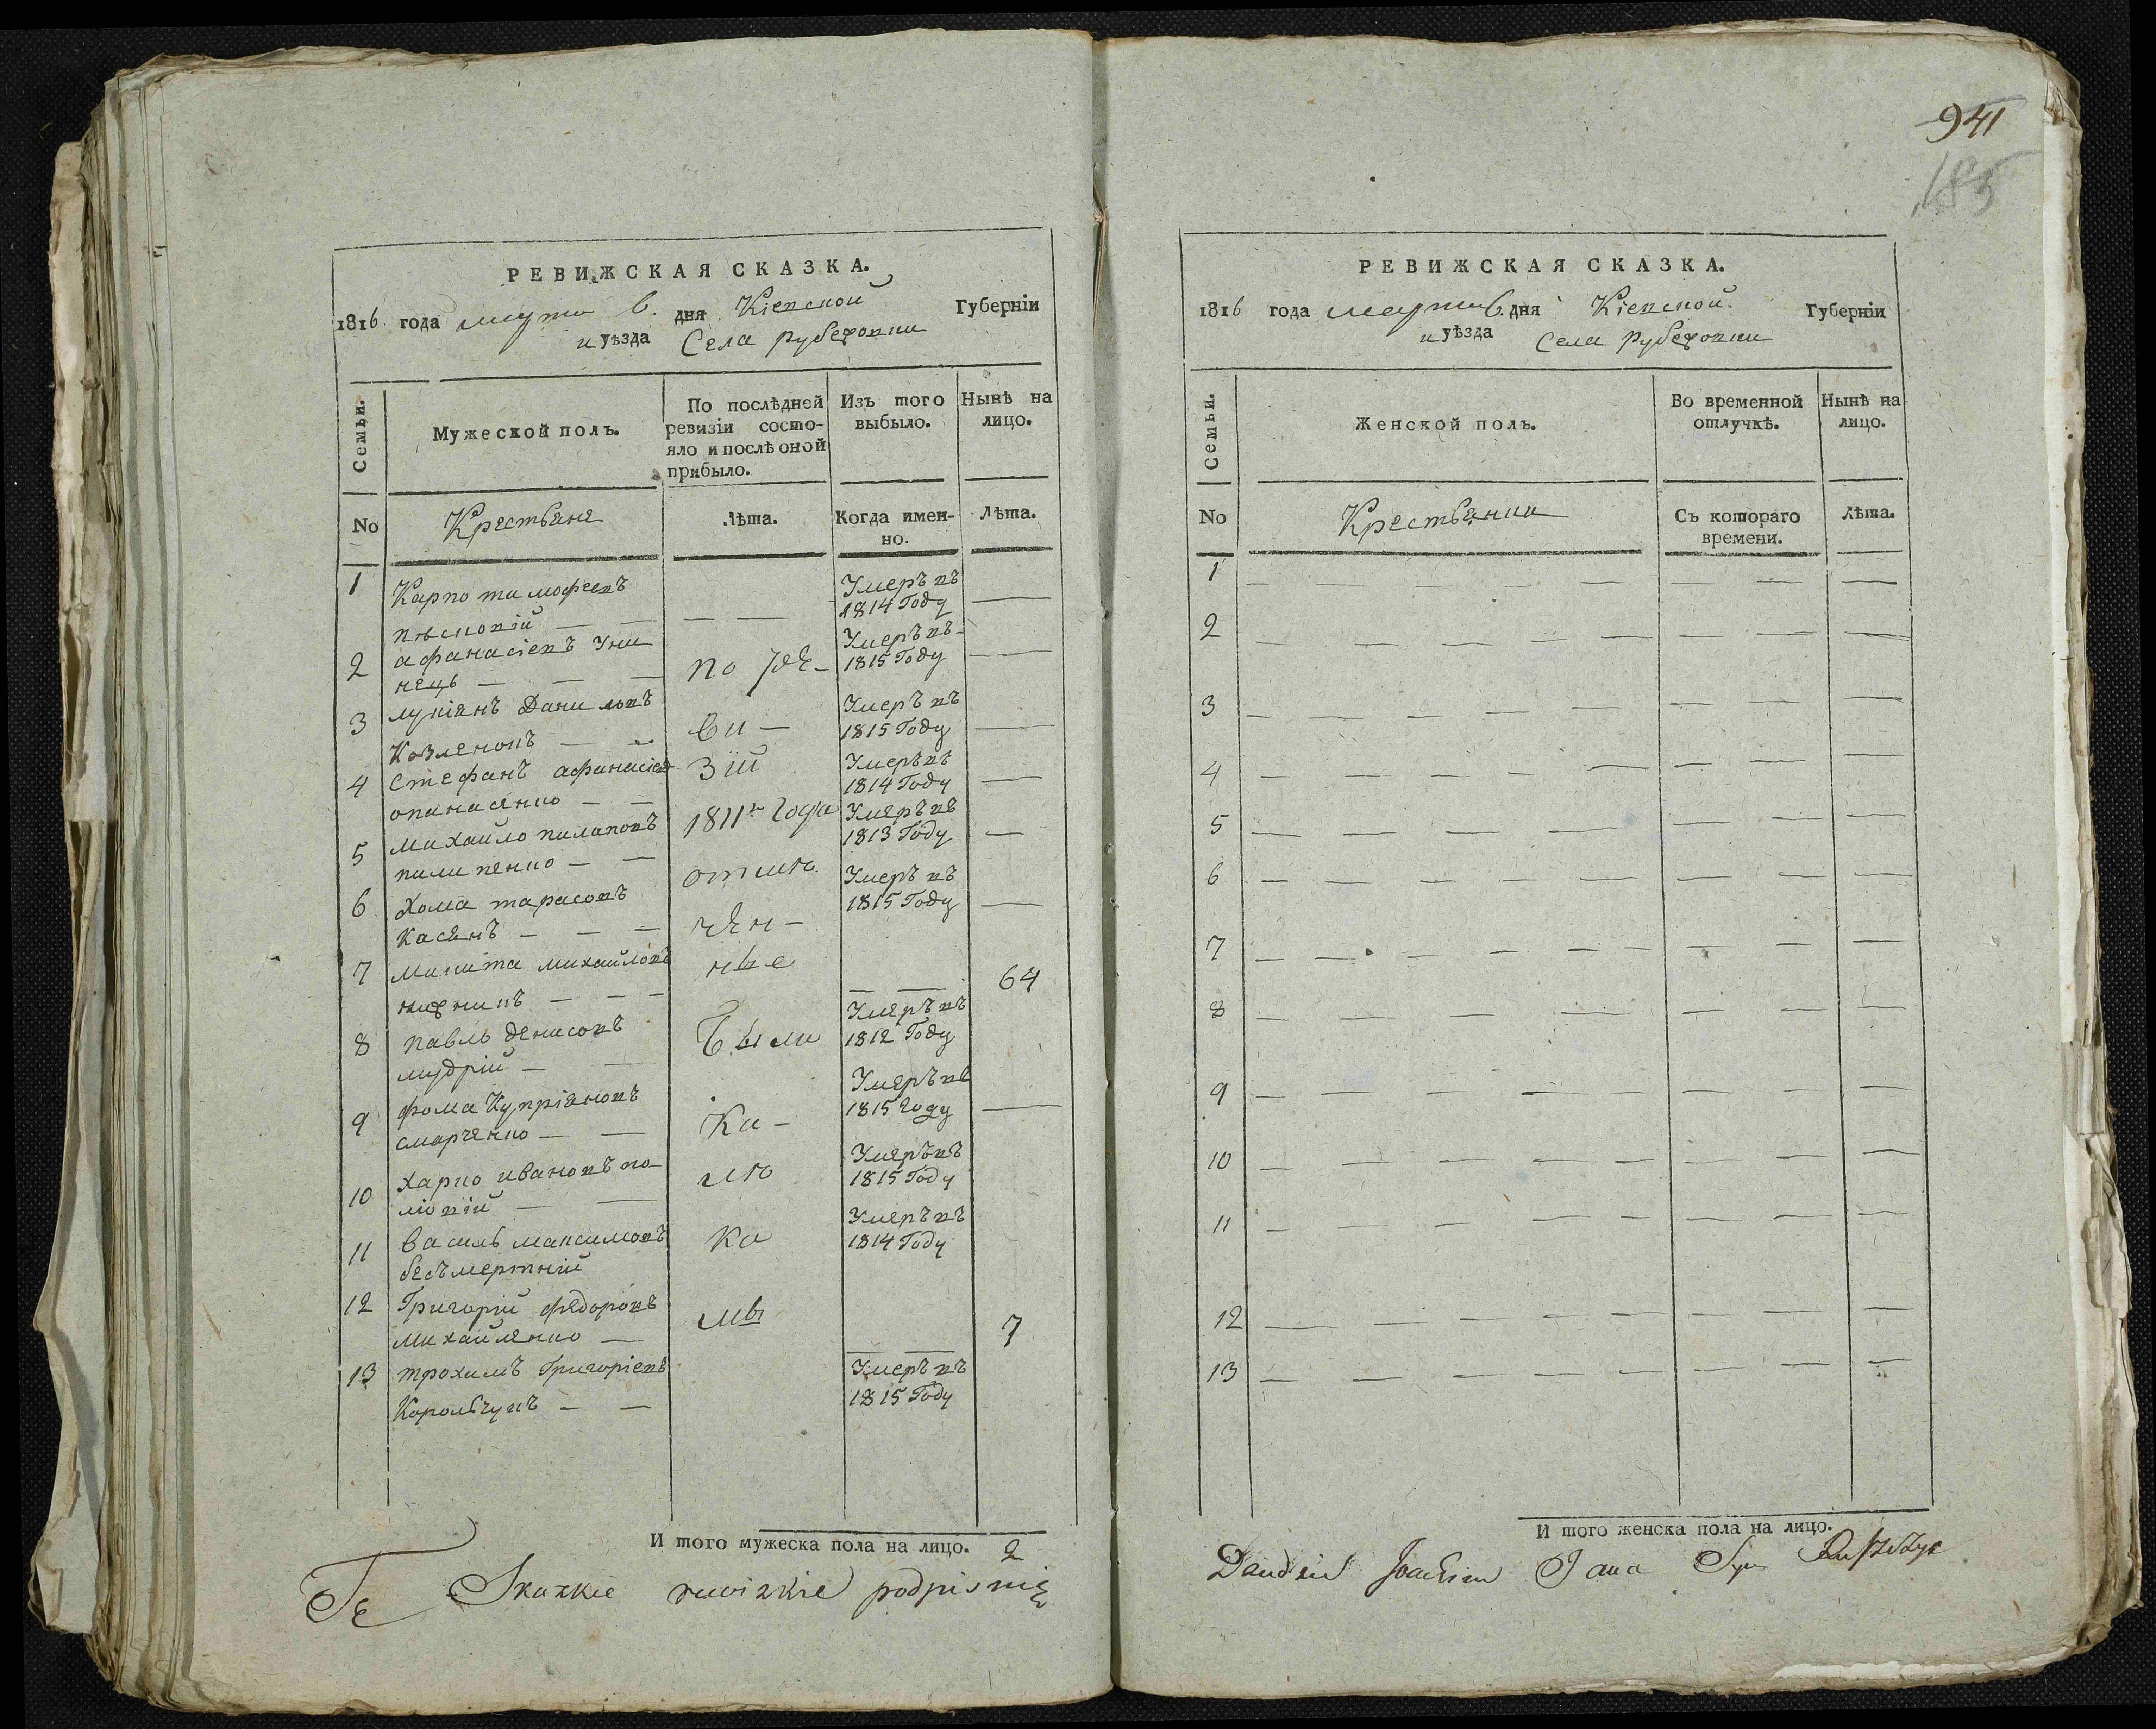 941
185
РЕВИЖСКАЯ СКАЗКА.
1816 года марта 6. дня Кіевской Губерніи
и уѣзда Села Рубежовки
Семьи.
Мужеской полъ.
По послѣдней ревизіи состо-
яло и послѣ оной
прибыло.
Изъ того
выбыло.
Нынѣ на
лицо.
No
Крестьяне
Лѣта.
Когда имен-
но.
Лѣта.
1 Карпо тимофеевъ Умеръ въ
1814 Году
2 афанасіевъ По Ре- Умеръ въ
1815 Году
3 лукіянъ Даниловъ ви- Умеръ въ
Козленокъ 1815 Году
4 Стефанъ афанасіев зіи Умеръ въ
опанасенко 1814 Году
5 михайло пилиповъ 1811го Года Умеръ въ
пилипенко 1813 Году
6 Хома тарасовъ отмѣ Умеръ въ
Касянъ чен- 1815 Году
7 микита михайловъ ные 64
8 павлъ денисовъ Были Умеръ въ
мудрій 1812 Году
9 фома Купріяновъ Ка- Умеръ въ
смарченко 1815 Году
10 Карпо ивановъ по- мѣ Умеръ въ
1815 Году
11 василь максимовъ ка Умеръ въ
безъмертній 1814 Году
12 Григорій федоровъ мы
михайленко 7
13 трохимъ Григоріевъ Умеръ въ
Корольчукъ 1815 Году
И того мужеска пола на лицо. 2
Te Skazkie rewizkie podpisuię
РЕВИЖСКАЯ СКАЗКА.
1816 года марта 6. дня Кіевской Губерніи
и уѣзда Села Рубежовки
Семьи.
Женской полъ.
Во временной
отлучкѣ.
Нынѣ на
лицо.
No
Крестьянки
Съ котораго
времени.
Лѣта.
1
2
3
4
5
6
7
8
9
10
11
12
13
И того женска пола на лицо.
Joachim Jana Syn